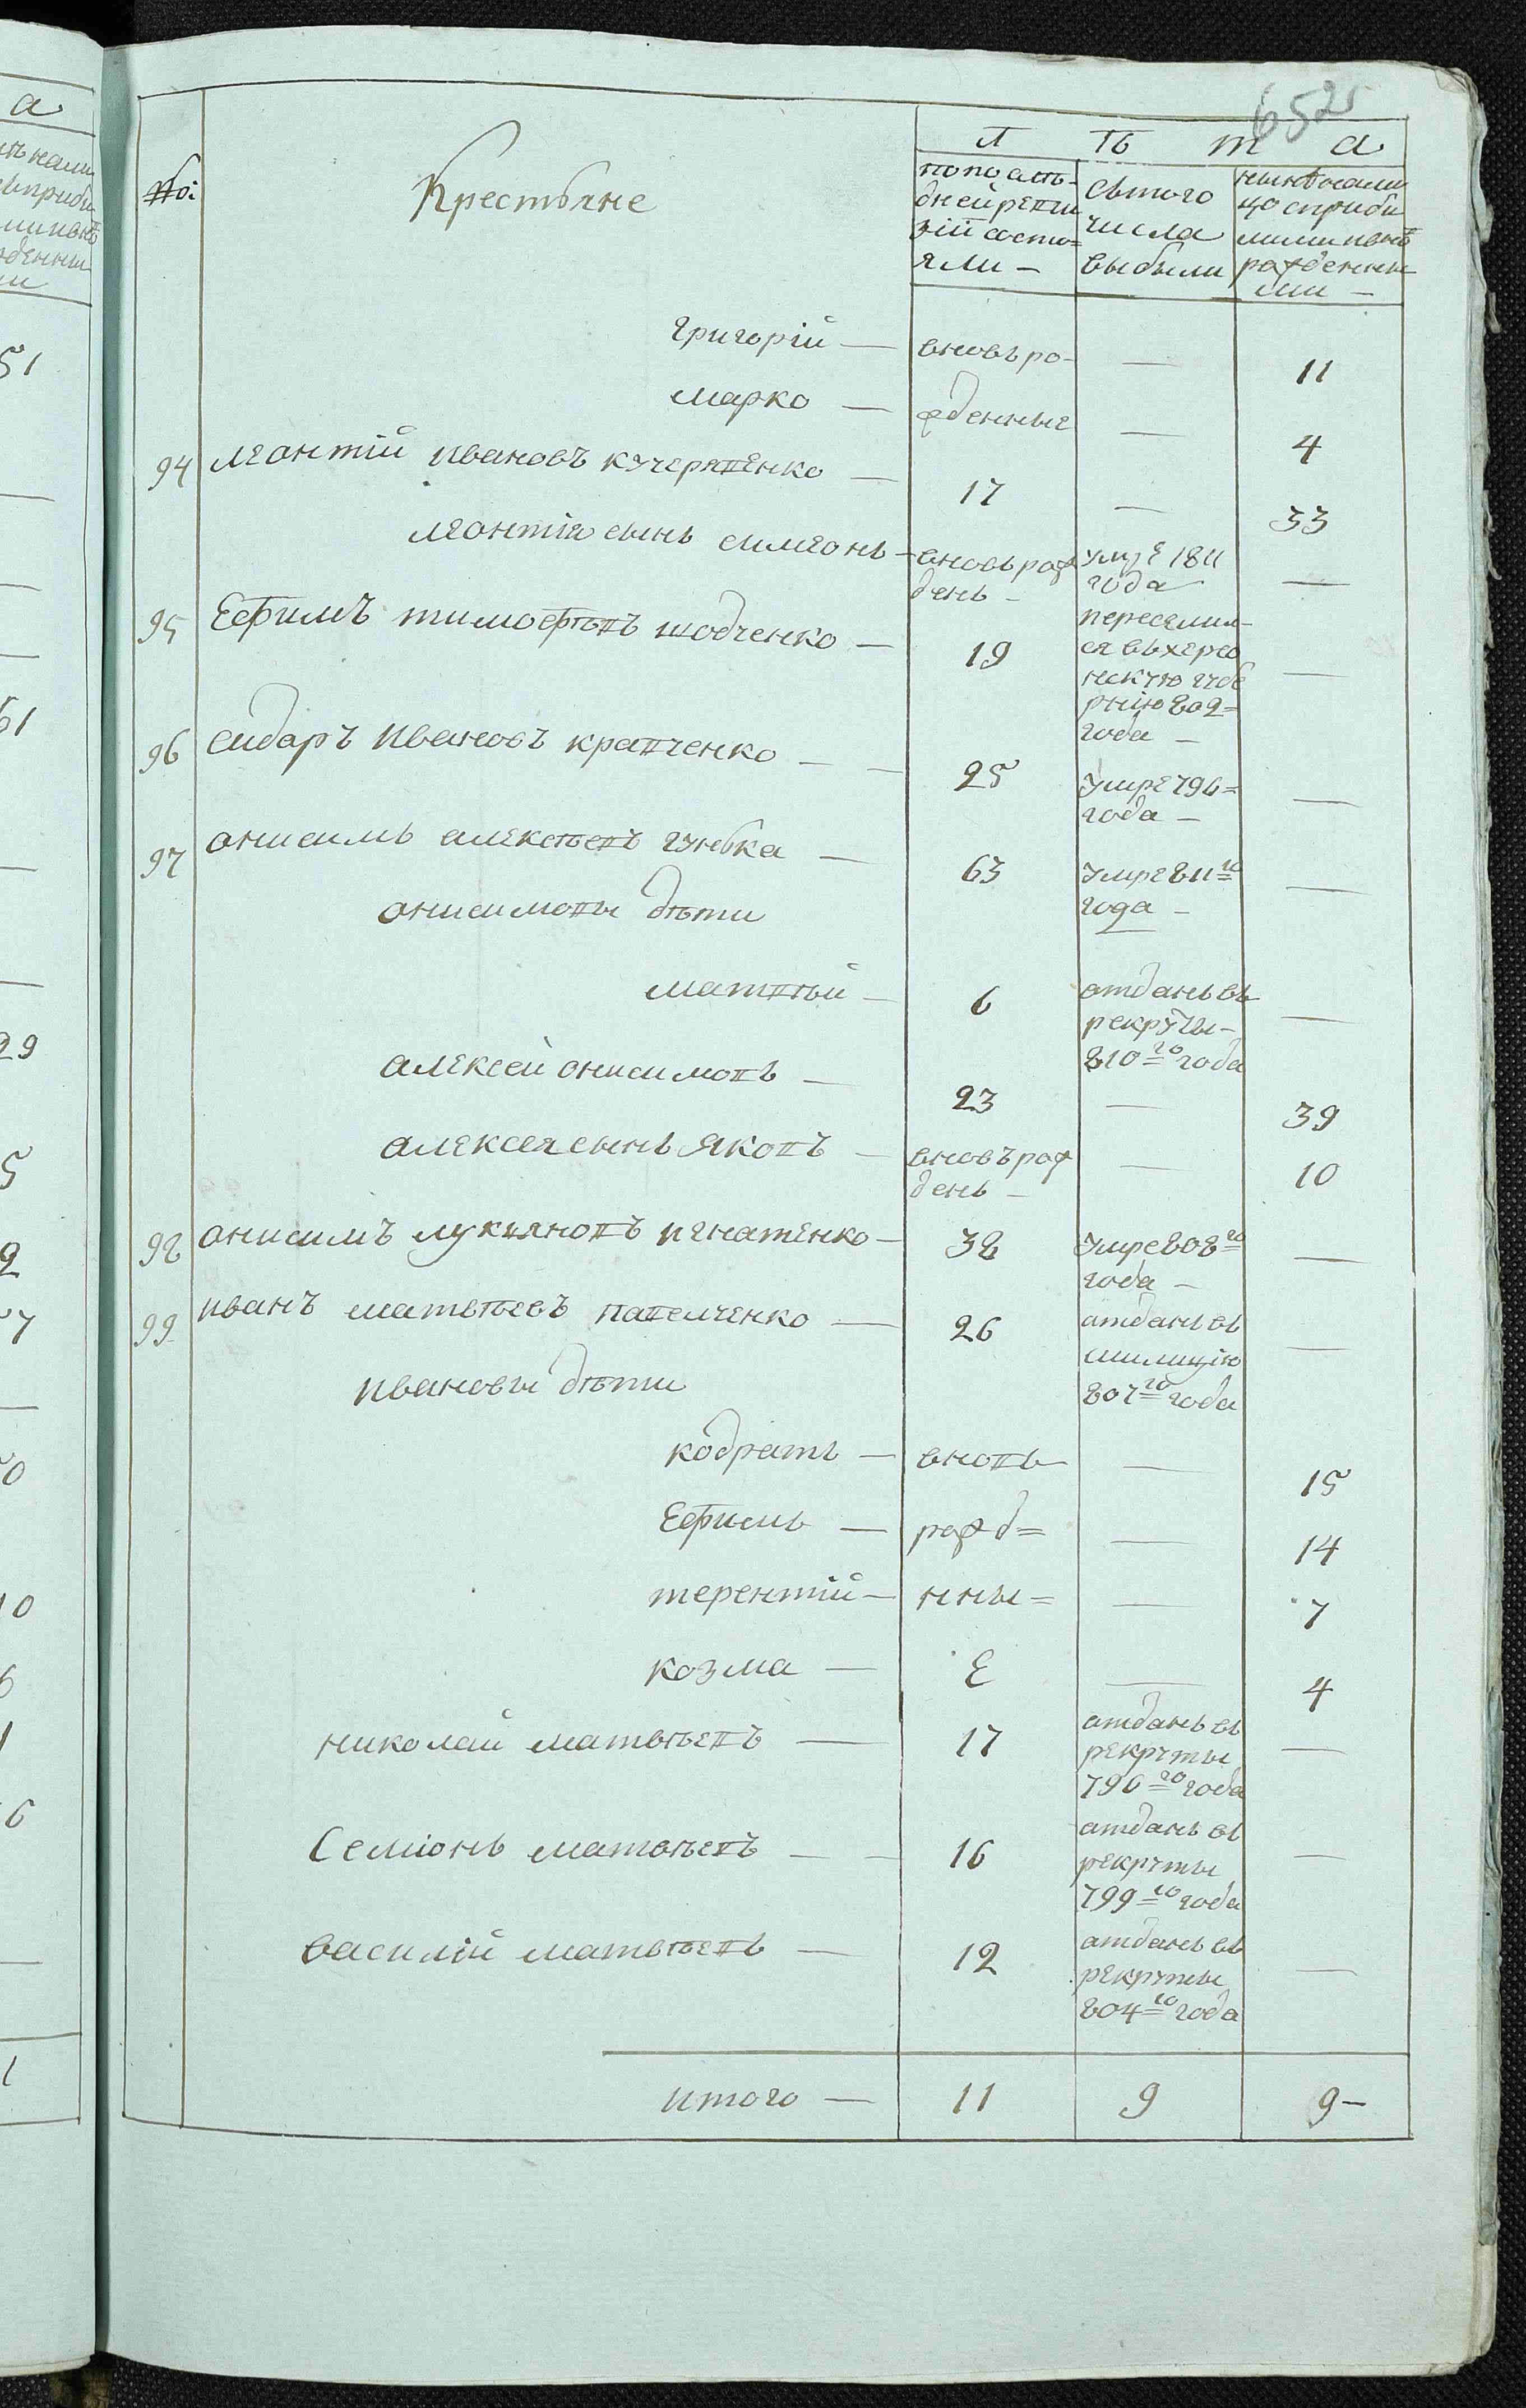 652
№:
Крестьяне
Л Ѣ т а
попослѣ-
дней реви
зій состо=
яли —
Сътого
числа
выбыли
нынѣ нали
цо сприбы
лыми ивнѣ
рожденны
ми —
Григорій — вновь ро- — 11
Марко — жденные — 4
94 Леонтій Ивановъ Кучерявенко — 17 — 33
Леонтія сынъ Симеонъ — вновь рож умрѣ 1811 —
денъ — года
95 Ефимъ Тимофѣевъ Шовченко — 19 переселил- —
ся въ херсо
нскую губе
рнію 802=
года —
96 Сидаръ Ивановъ Кравченко — 25 Умре 796= —
года —
97 Онисимъ Алексѣевъ Гунька — 63 Умре 811го —
Онисимовы дѣти года —
Матвѣй — 6 отданъ въ —
рекруты —
810го года
Алексей Онисимовъ — 23 — 39
Алексея сынъ Яковъ — вновь рож — 10
денъ —
98 Онисимъ Лукяновъ Игнатенко — 38 Умре 808го —
года —
99 Иванъ Матвѣевъ Павелченко — 26 атданъ въ —
милицію
Ивановы дѣти 807го года
Кодратъ — вновь — 15
Ефимъ — рожд= — 14
Терентій — нны= — 7
Козма — Е — 4
Николай Матвѣевъ — 17 атданъ въ —
рекруты
796го года
Семіонъ Матвѣевъ — 16 атданъ въ —
рекруты
799го года
Василій Матвѣевъ — 12 атданъ въ —
рекруты
804го года
Итого — 11 9 9 —